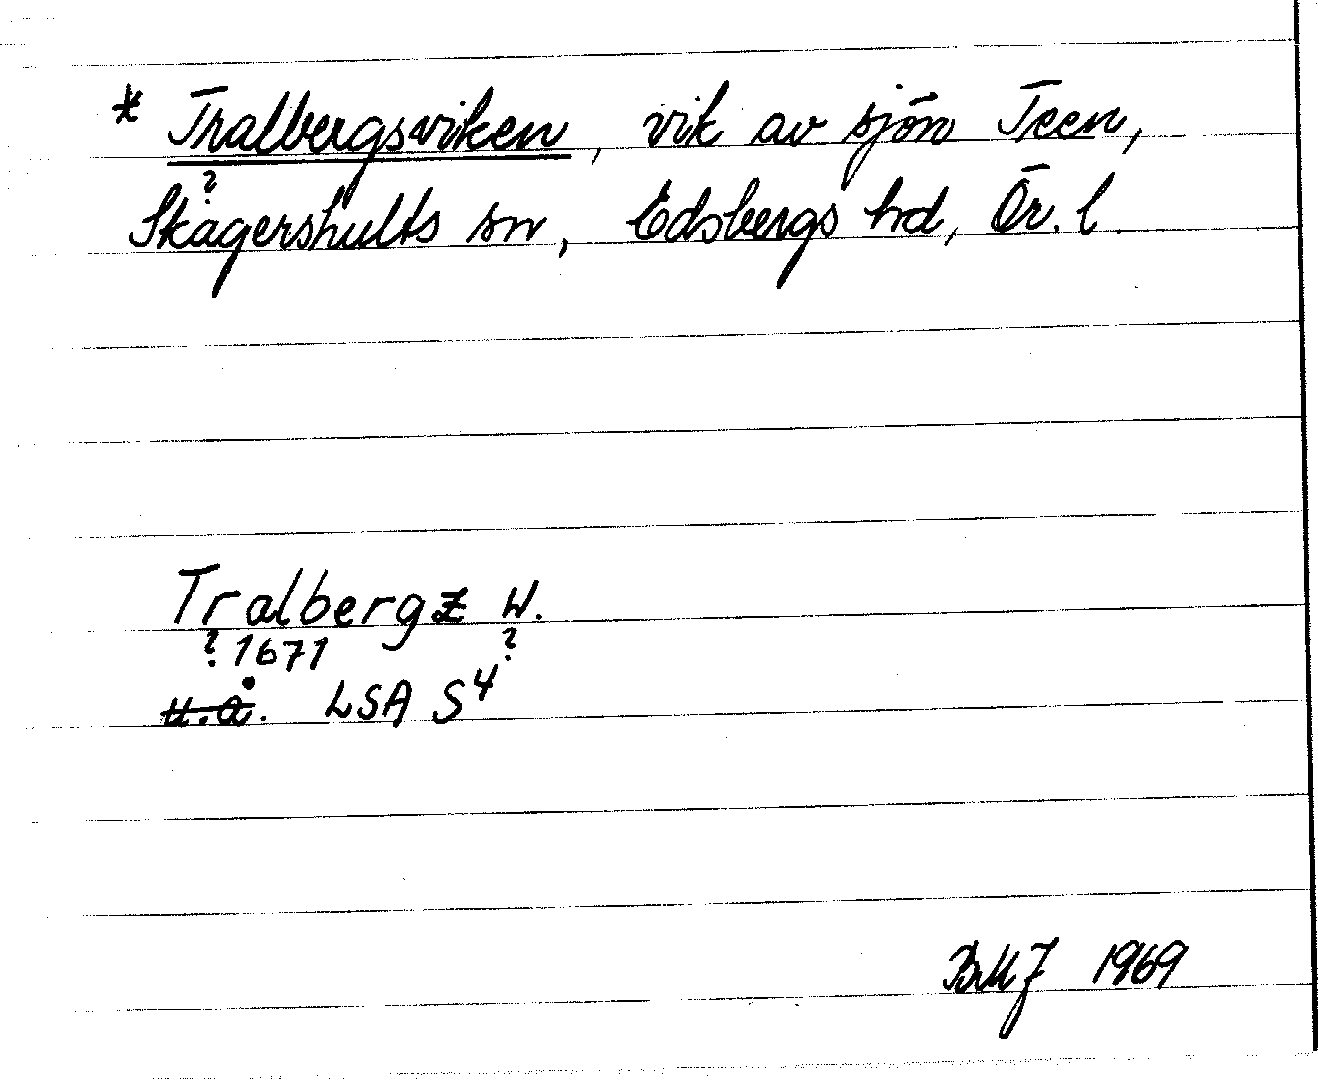 * Tralbergsviken, vik av sjön Teen,
?
Skagershults sn, Edsbergs hd, Ör. l.
Tralbergz W.
? 1671 ?
u.å. LSA S4
BMJ 1969